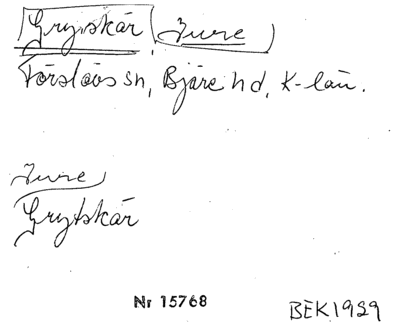 Grytskär, Jure
Förslövs sn, Bjäre hd, K-län.
Jure
Grytskär
Nr 15768
BEK1929